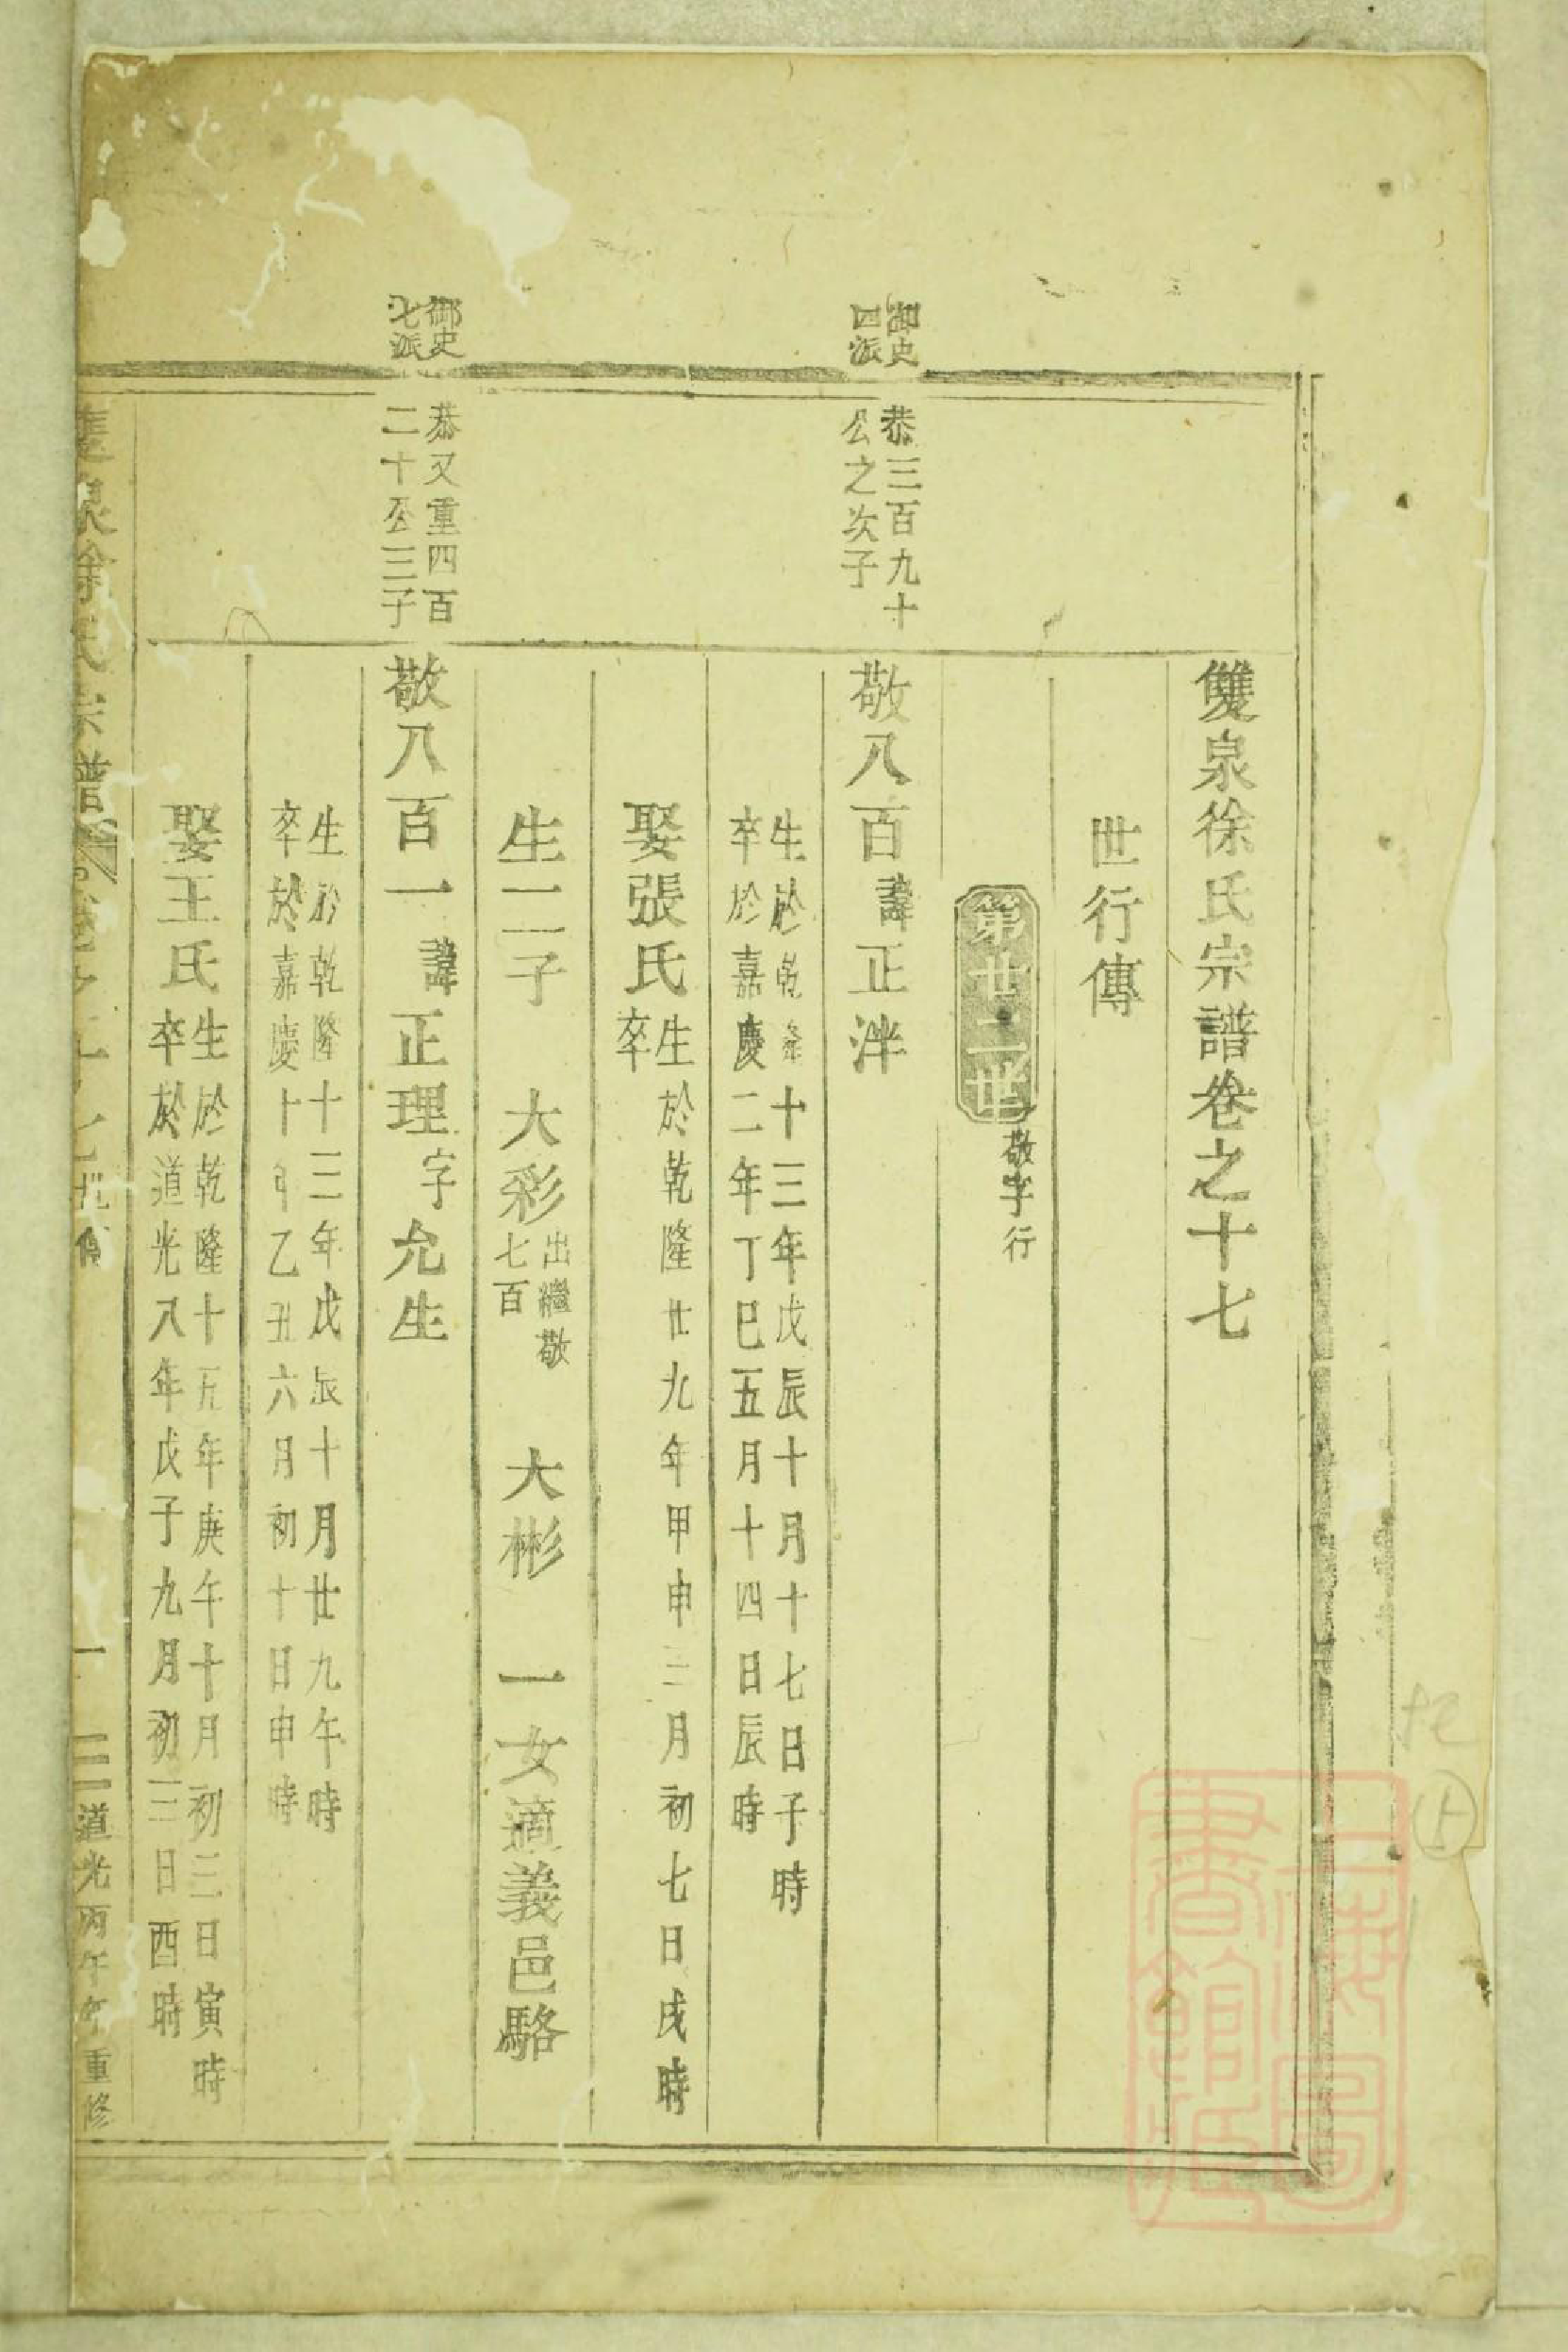 雙泉徐氏宗譜卷之十七
世行傳
第廿二世
敬字行
御史
四派
恭三百九十
公之次子
敬八百諱正泮
生於乾隆十三年戊辰十月十七日子時
卒於嘉慶二年丁巳五月十四日辰時
娶張氏
生於乾隆廿九年甲申二月初七日戌時
卒
生二子 大彩 出繼敬
七百
大彬 一女適義邑駱
御史
七派
恭又重四百
二十公三子
敬八百一諱正理字允生
生於乾隆十三年戊辰十月廿九午時
卒於嘉慶十年乙丑六月初十日申時
娶王氏
生於乾隆十五年庚午十月初三日寅時
卒於道光八年戊子九月初三日酉時
雙泉徐氏宗譜 卷之十七 行傳 一 道光丙午年重修
上海圖
書館藏